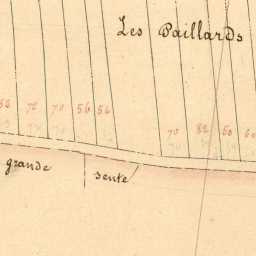 Les Paillards
72 70 56 54
70 82 60
grande
sente